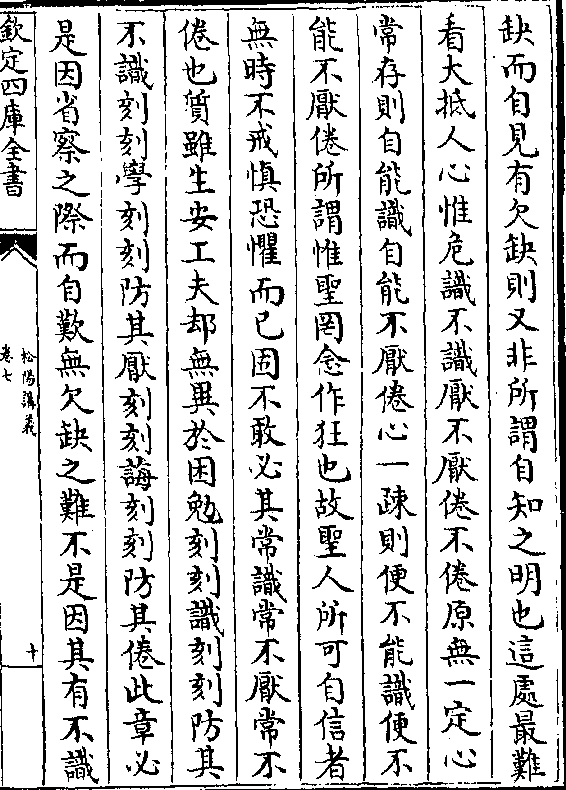 缺而自見有欠缺則又非所謂自知之明也這處最難
看大抵人心惟危識不識厭不厭倦不倦原無一定心
常存則自能識自能不厭倦心一疎則便不能識便不
能不厭倦所謂惟聖罔念作狂也故聖人所可自信者
無時不戒慎恐懼而已固不敢必其常識常不厭常不
倦也質雖生安工夫却無異於困勉刻刻識刻刻防其
不識刻刻學刻刻防其厭刻刻誨刻刻防其倦此章必
是因省察之際而自歎無欠缺之難不是因其有不識
欽定四庫全書
松陽講義
卷七
十